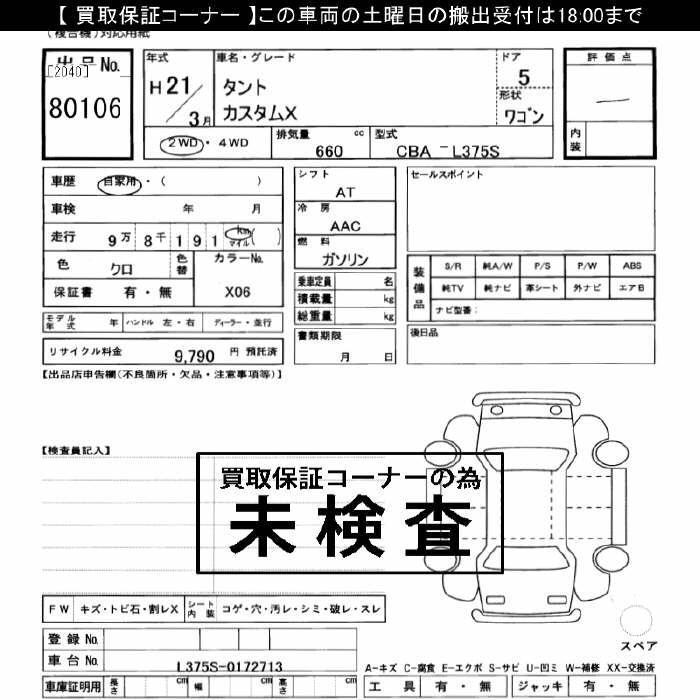 【 買取保証コーナー 】この車両の土曜日の搬出受付は18:00まで
(複合機)対応用紙
出品No.
[2040]
80106
年式
H 21/3月
車名・グレード
タント
カスタムX
ドア
5
形状
ワゴン
評価点
内装
2WD・4WD
排気量 cc
660
型式
CBA - L375S
車歴 自家用・( )
車検 年 月
走行 9万 8千 1 9 1 km マイル ( )
色 クロ
色替
カラーNo.
X06
保証書 有・無
モデル年式 年 ハンドル 左・右 ディーラー・並行
リサイクル料金 9,790 円 預託済
シフト
AT
冷房
AAC
燃料
ガソリン
乗車定員 名
積載量 kg
総重量 kg
書類期限
月 日
セールスポイント
装備品
S/R 純A/W P/S P/W ABS
純TV 純ナビ 革シート 外ナビ エアB
ナビ型番:
後日品
【出品店申告欄(不良箇所・欠品・注意事項等)】
【検査員記入】
買取保証コーナーの為
未検査
FW キズ・トビ石・割レX
シート内装 コゲ・穴・汚レ・シミ・破レ・スレ
登録No.
車台No. L375S-0172713
車庫証明用 長さ cm 幅 cm 高さ cm
スペア
A-キズ C-腐食 E-エクボ S-サビ U-凹ミ W-補修 XX-交換済
工具 有・無 ジャッキ 有・無